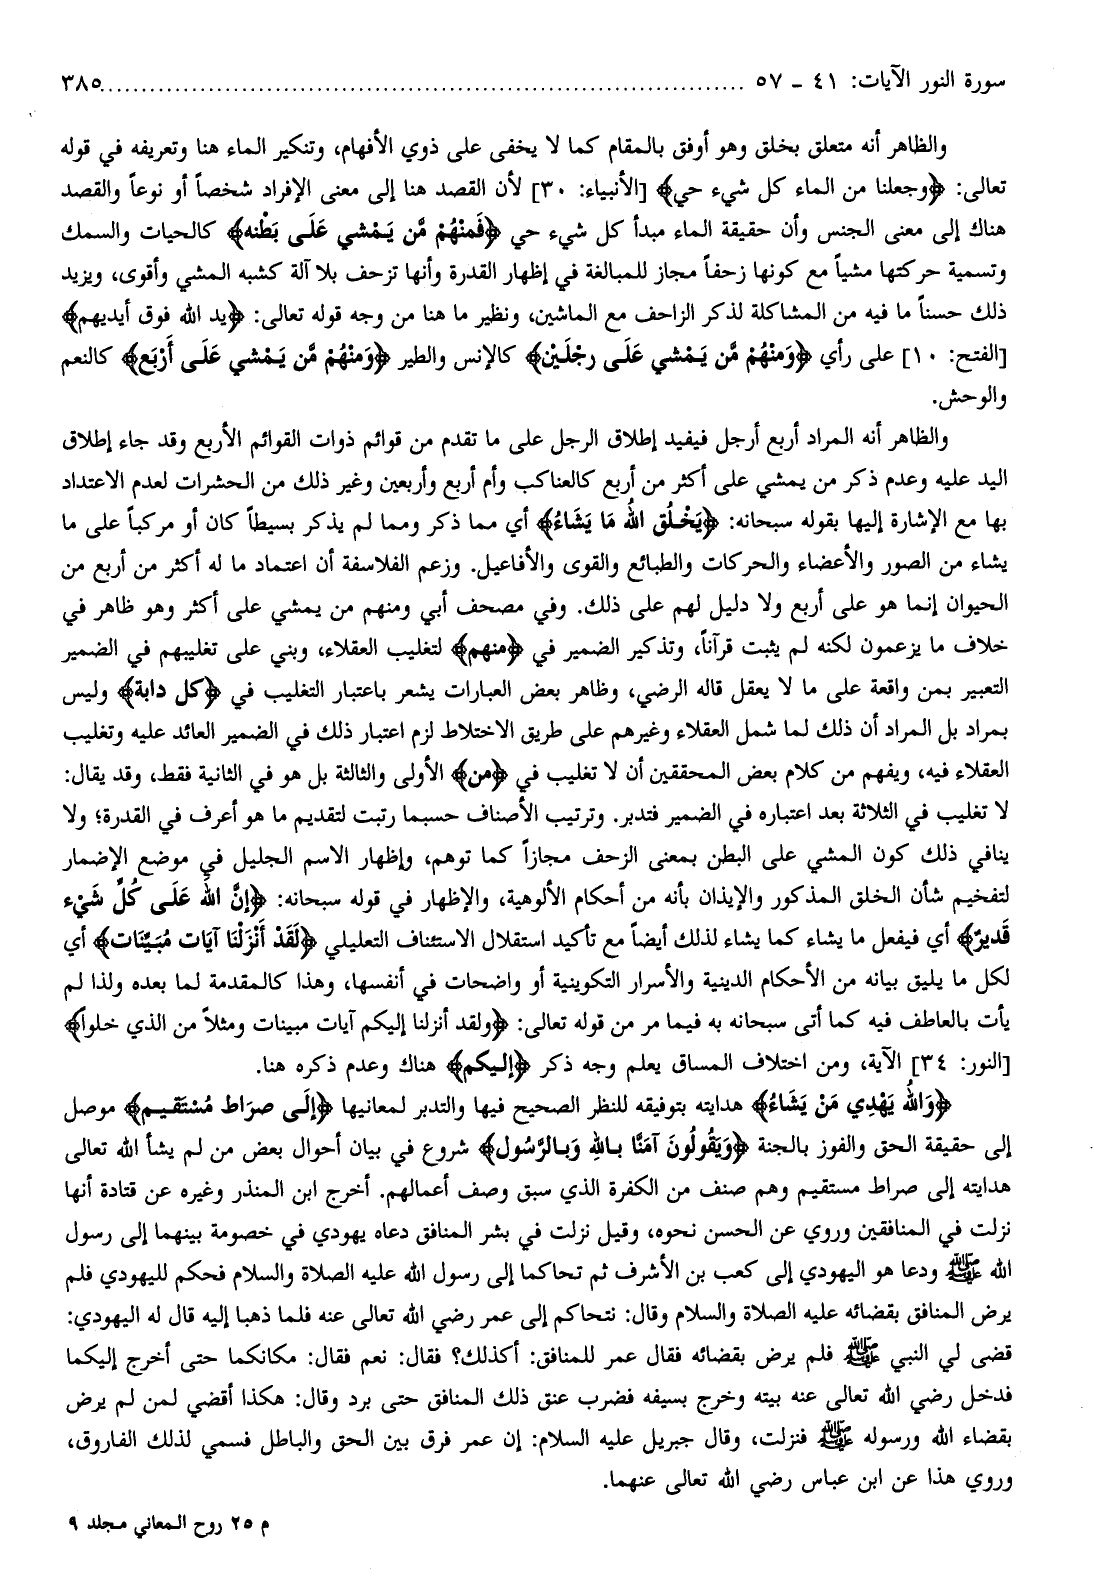 سورة النور الآيات: ٤١ ـ ٥٧ ................................................................................ ٣٨٥
والظاهر أنه متعلق بخلق وهو أوفق بالمقام كما لا يخفى على ذوي الأفهام، وتنكير الماء هنا وتعريفه في قوله
تعالى: ﴿وجعلنا من الماء كل شيء حي﴾ [الأنبياء: ٣٠] لأن القصد هنا إلى معنى الإفراد شخصاً أو نوعاً والقصد
هناك إلى معنى الجنس وأن حقيقة الماء مبدأ كل شيء حي ﴿فَمنْهُمْ مَّن يَـمْشي عَلَـى بَطْنه﴾ كالحيات والسمك
وتسمية حركتها مشياً مع كونها زحفاً مجاز للمبالغة في إظهار القدرة وأنها تزحف بلا آلة كشبه المشي وأقوى، ويزيد
ذلك حسناً ما فيه من المشاكلة لذكر الزاحف مع الماشين، ونظير ما هنا من وجه قوله تعالى: ﴿يد الله فوق أيديهم﴾
[الفتح: ١٠] على رأي ﴿وَمنْهُمْ مَّن يَـمْشي عَلَـى رجْلَـيْن﴾ كالإنس والطير ﴿وَمنْهُمْ مَّن يَـمْشي عَلَـى أَرْبَع﴾ كالنعم
والوحش.
والظاهر أنه المراد أربع أرجل فيفيد إطلاق الرجل على ما تقدم من قوائم ذوات القوائم الأربع وقد جاء إطلاق
اليد عليه وعدم ذكر من يمشي على أكثر من أربع كالعناكب وأم أربع وأربعين وغير ذلك من الحشرات لعدم الاعتداد
بها مع الإشارة إليها بقوله سبحانه: ﴿يَخْلُق اللهُ مَا يَشَاءُ﴾ أي مما ذكر ومما لم يذكر بسيطاً كان أو مركباً على ما
يشاء من الصور والأعضاء والحركات والطبائع والقوى والأفاعيل. وزعم الفلاسفة أن اعتماد ما له أكثر من أربع من
الحيوان إنما هو على أربع ولا دليل لهم على ذلك. وفي مصحف أبي ومنهم من يمشي على أكثر وهو ظاهر في
خلاف ما يزعمون لكنه لم يثبت قرآناً، وتذكير الضمير في ﴿منهم﴾ لتغليب العقلاء، وبني على تغليبهم في الضمير
التعبير بمن واقعة على ما لا يعقل قاله الرضي، وظاهر بعض العبارات يشعر باعتبار التغليب في ﴿كل دابة﴾ وليس
بمراد بل المراد أن ذلك لما شمل العقلاء وغيرهم على طريق الاختلاط لزم اعتبار ذلك في الضمير العائد عليه وتغليب
العقلاء فيه، ويفهم من كلام بعض المحققين أن لا تغليب في ﴿من﴾ الأولى والثالثة بل هو في الثانية فقط، وقد يقال:
لا تغليب في الثلاثة بعد اعتباره في الضمير فتدبر. وترتيب الأصناف حسبما رتبت لتقديم ما هو أعرف في القدرة؛ ولا
ينافي ذلك كون المشي على البطن بمعنى الزحف مجازاً كما توهم، وإظهار الاسم الجليل في موضع الإضمار
لتفخيم شأن الخلق المذكور والإيذان بأنه من أحكام الألوهية، والإظهار في قوله سبحانه: ﴿إنَّ اللهَ عَلَـى كُلِّ شَيْء
قَديرٌ﴾ أي فيفعل ما يشاء كما يشاء لذلك أيضاً مع تأكيد استقلال الاستئناف التعليلي ﴿لَقَدْ أَنْزَلْنَا آيَات مُبَيِّنَات﴾ أي
لكل ما يليق بيانه من الأحكام الدينية والأسرار التكوينية أو واضحات في أنفسها، وهذا كالمقدمة لما بعده ولذا لم
يأت بالعاطف فيه كما أتى سبحانه به فيما مر من قوله تعالى: ﴿ولقد أنزلنا إليكم آيات مبينات ومثلاً من الذي خلوا﴾
[النور: ٣٤] الآية، ومن اختلاف المساق يعلم وجه ذكر ﴿إليكم﴾ هناك وعدم ذكره هنا.
﴿وَاللهُ يَهْدِي مَنْ يَشَاءُ﴾ هدايته بتوفيقه للنظر الصحيح فيها والتدبر لمعانيها ﴿إلَـى صرَاط مُسْتَقيـم﴾ موصل
إلى حقيقة الحق والفوز بالجنة ﴿وَيَقُولُونَ آمَنَّا بـاللهِ وَبـالرَّسُول﴾ شروع في بيان أحوال بعض من لم يشأ الله تعالى
هدايته إلى صراط مستقيم وهم صنف من الكفرة الذي سبق وصف أعمالهم. أخرج ابن المنذر وغيره عن قتادة أنها
نزلت في المنافقين وروي عن الحسن نحوه، وقيل نزلت في بشر المنافق دعاه يهودي في خصومة بينهما إلى رسول
الله ﷺ ودعا هو اليهودي إلى كعب بن الأشرف ثم تحاكما إلى رسول الله عليه الصلاة والسلام فحكم لليهودي فلم
يرض المنافق بقضائه عليه الصلاة والسلام وقال: نتحاكم إلى عمر رضي الله تعالى عنه فلما ذهبا إليه قال له اليهودي:
قضى لي النبي ﷺ فلم يرض بقضائه فقال عمر للمنافق: أكذلك؟ فقال: نعم فقال: مكانكما حتى أخرج إليكما
فدخل رضي الله تعالى عنه بيته وخرج بسيفه فضرب عنق ذلك المنافق حتى برد وقال: هكذا أقضي لمن لم يرض
بقضاء الله ورسوله ﷺ فنزلت، وقال جبريل عليه السلام: إن عمر فرق بين الحق والباطل فسمي لذلك الفاروق،
وروي هذا عن ابن عباس رضي الله تعالى عنهما.
م ٢٥ روح المعاني مجلد ٩